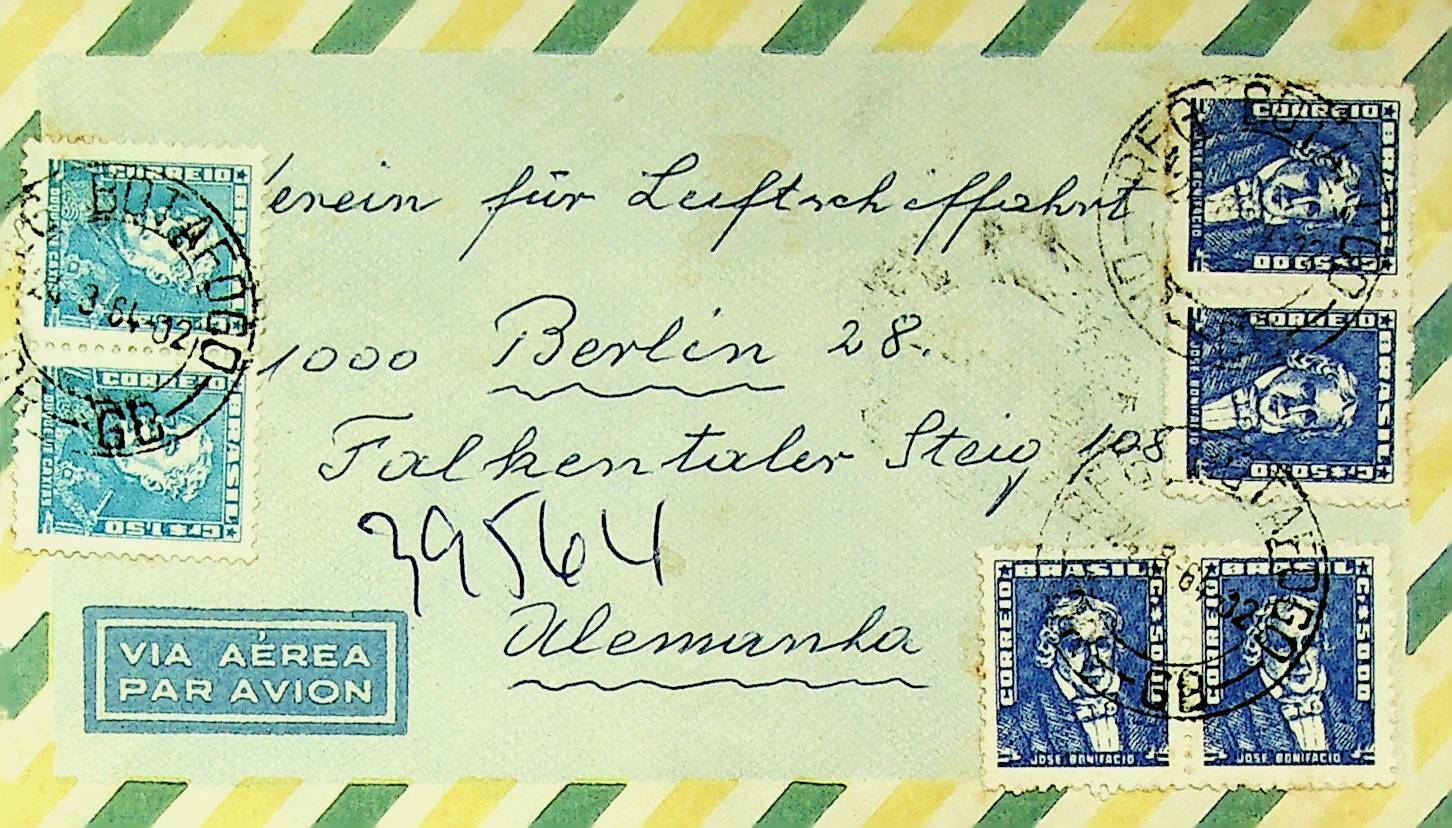 Verein für Luftschiffahrt
1000 Berlin 28.
Falkentaler Steig 108
39564
Alemanha
VIA AÉREA
PAR AVION
CORREIO
BRASIL
DUQUE DE CAXIAS
CORREIO
BRASIL
DUQUE DE CAXIAS
Cr$ 1,50
BOTAFOGO
3-64-02
GB
CORREIO
BRASIL
JOSÉ BONIFACIO
Cr$ 50,00
CORREIO
BRASIL
JOSÉ BONIFACIO
Cr$ 50,00
BRASIL
CORREIO
Cr$ 50,00
JOSÉ BONIFACIO
BRASIL
CORREIO
Cr$ 50,00
JOSÉ BONIFACIO
64-02
GB